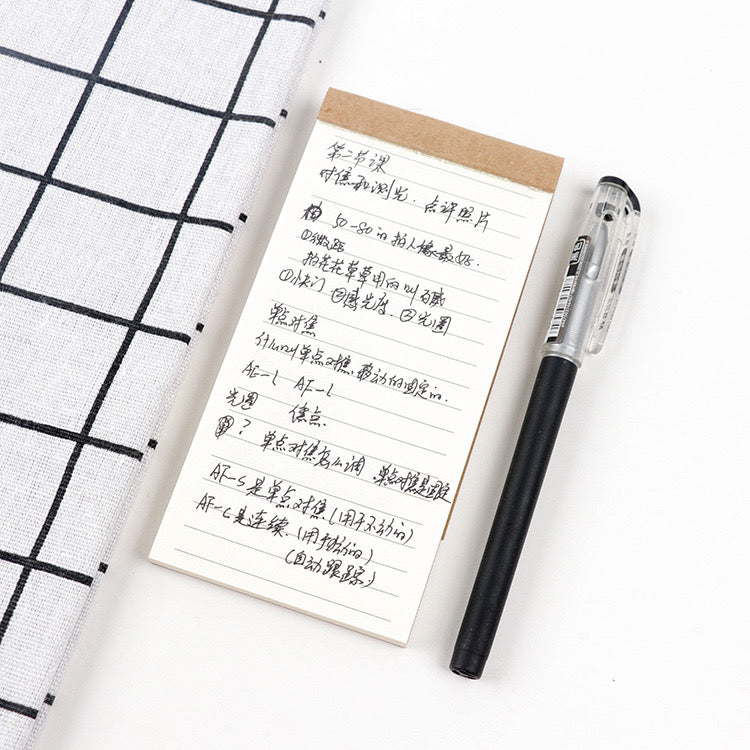 第二节课
对焦和测光. 点评照片
50-80的拍人像最好.
①微距
拍花花草草用的叫百微
①快门 ②感光度. ③光圈
单点对焦
什么时单点对焦, 移动的固定的.
AE-L AF-L
光圈 焦点
? 单点对焦怎么调 单点对焦是固定
AF-S是单点对焦(用于不动的)
AF-C是连续.(用于动的)
(自动跟踪)